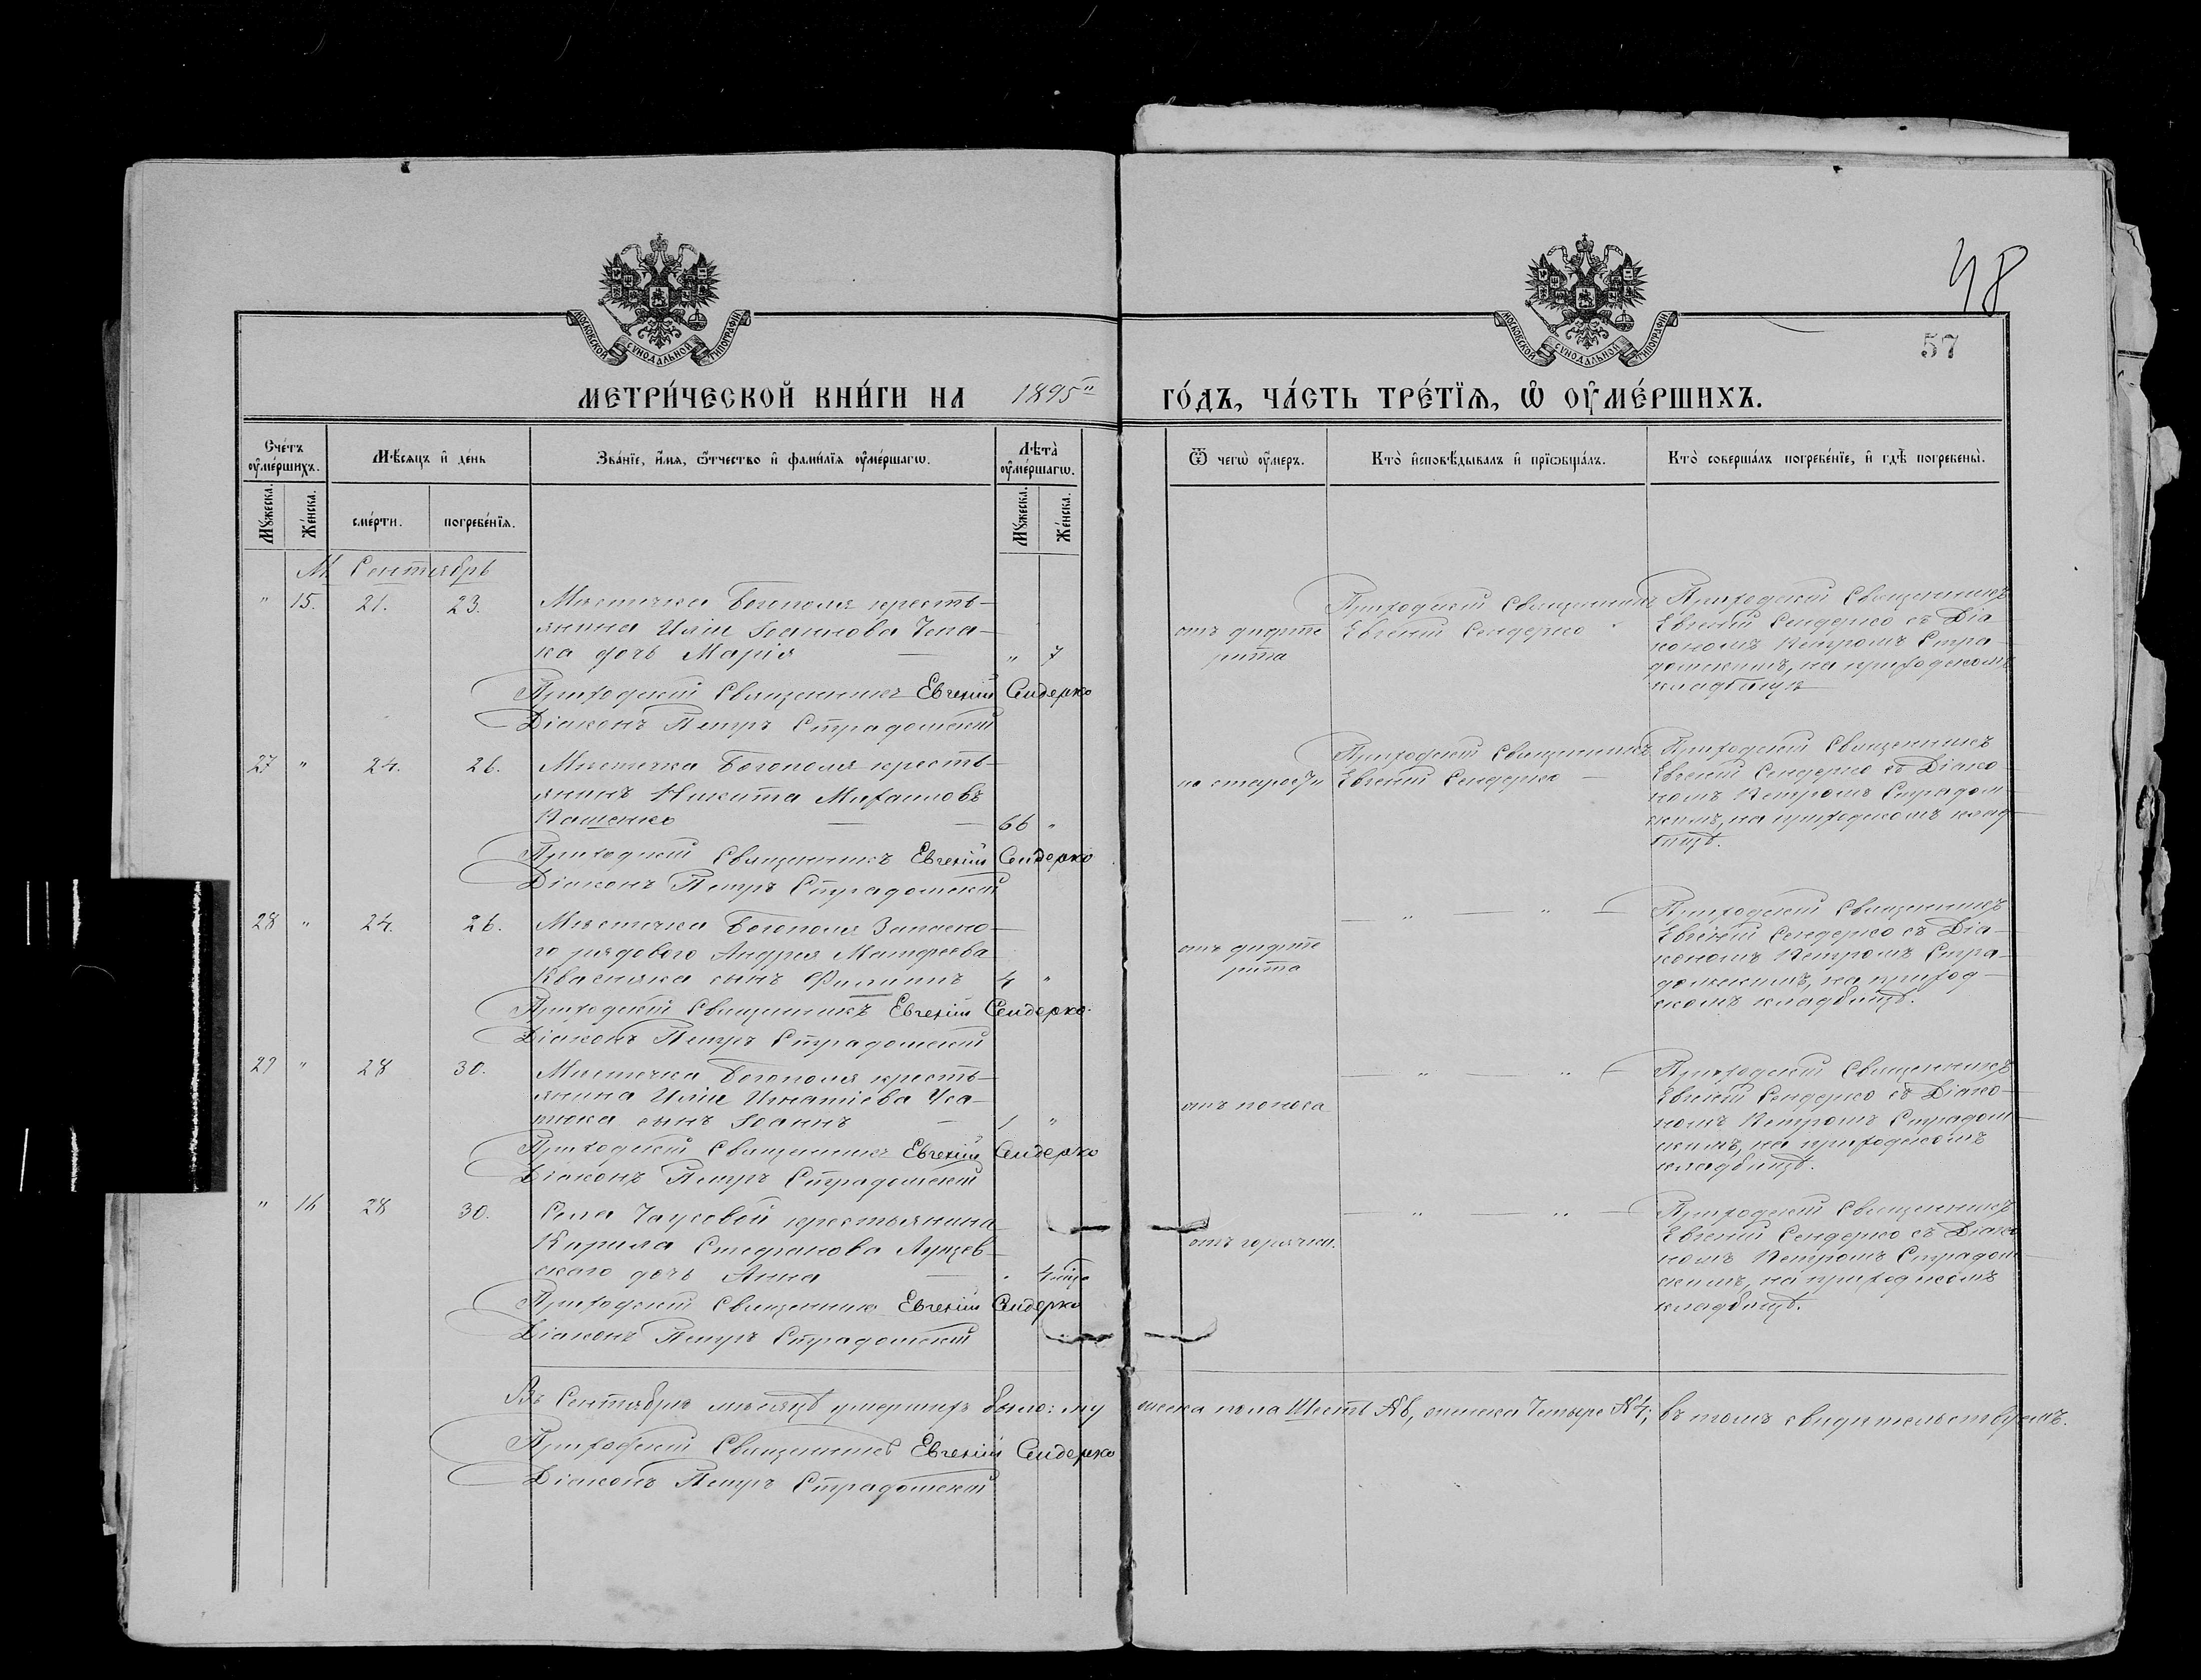 48
57
МОСКОВСКОЙ СУНОДАЛЬНОЙ ТИПОГРАФІИ
МОСКОВСКОЙ СУНОДАЛЬНОЙ ТИПОГРАФІИ
МЕТРИ́ЧЕСКОЙ КНИ́ГИ НА 1895 ГО́ДЪ, ЧА́СТЬ ТРЕ́ТЇѦ, Ѡ҆ ОУ҆МЕ́РШИХЪ.
Сче́тъ оу҆ме́ршихъ.
Мꙋ́жеска.
Же́нска.
Мѣ́сѧцъ и҆ де́нь
сме́рти.
погребе́нїѧ.
Зва́нїе, и҆́мѧ, ѻ҆́тчество и҆ фами́лїѧ оу҆ме́ршагѡ.
Лѣ́та оу҆ме́ршагѡ.
Мꙋ́жеска.
Же́нска.
Ѿ чегѡ̀ оу҆́меръ.
Кто̀ и҆сповѣ́дывалъ и҆ прїѡбща́лъ.
Кто̀ соверша́лъ погребе́нїе, и҆ гдѣ̀ погребены̀.
М. Сентябрь
" 15. 21. 23.
Мѣстечка Богополя кресть-
янина Иліи Іоаннова Чепа-
ка дочь Марія — " 7
Приходскій Священникъ Евгеній Сендерко
Діаконъ Петръ Страдомскій
отъ дифте
рита
Приходскій Священникъ
Евгеній Сендерко
Приходскій Священникъ
Евгеній Сендерко съ Діа
кономъ Петромъ Стра-
домскимъ, на приходскомъ
кладбищѣ
27 " 24. 26.
Мѣстечка Богополя кресть-
янинъ Никита Михаиловъ
Пащенко — — 66 "
Приходскій Священникъ Евгеній Сендерко
Діаконъ Петръ Страдомскій
на старости
Приходскій Священникъ
Евгеній Сендерко —
Приходскій Священникъ
Евгеній Сендерко съ Діако-
номъ Петромъ Страдом-
скимъ, на приходскомъ клад-
бищѣ.
28 " 24. 26.
Мѣстечка Богополя Запасно-
го рядового Андрея Матфеева
Квасняка сынъ Филиппъ 4 "
Приходскій Священникъ Евгеній Сендерко
Діаконъ Петръ Страдомскій
отъ дифте
рита
— " — " —
Приходскій Священникъ
Евгеній Сендерко съ Діа-
кономъ Петромъ Стра-
домскимъ, на приход-
скомъ кладбищѣ.
29 " 28 30.
Мѣстечка Богополя кресть-
янина Иліи Игнатіева Уса-
тюка сынъ Іоаннъ — 1 "
Приходскій Священникъ Евгеній Сендерко
Діаконъ Петръ Страдомскій
отъ поноса
— " — " —
Приходскій Священникъ
Евгеній Сендерко съ Діако-
номъ Петромъ Страдом-
скимъ, на приходскомъ
кладбищѣ.
" 16 28 30.
Села Чаусовой крестьянина
Кирила Стефанова
дочь Анна —
Приходскій Священникъ Евгеній Сендерко
Діаконъ Петръ Страдомскій
отъ горячки.
— " — " —
Приходскій Священникъ
Евгеній Сендерко съ Діако
номъ Петромъ Страдом-
скимъ, на приходскомъ
кладбищѣ.
Въ Сентябрѣ мѣсяцѣ умершихъ было: мужеска пола Шесть № 6, женска Четыре № 4; въ томъ свидѣтельствуемъ.
Приходскій Священникъ Евгеній Сендерко
Діаконъ Петръ Страдомскій